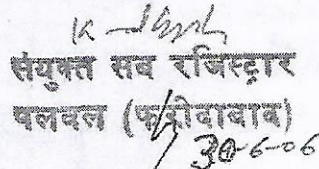 संयुक्त सब रजिस्ट्रार
पलवल (फरीदाबाद)
30-6-06